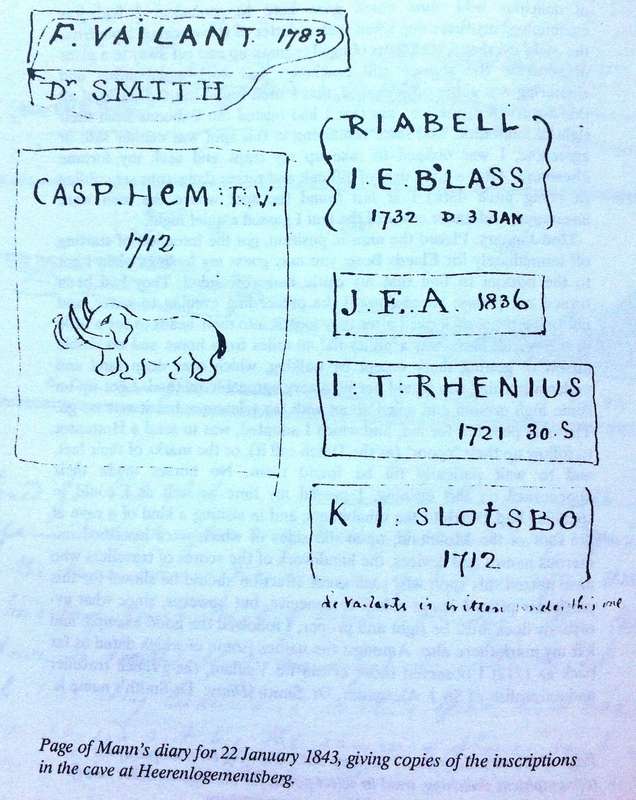 F. VAILANT. 1783
Dr. SMITH
CASP. HEM: T.V.
1712
RIABELL
I. E. BLASS
1732 D. 3 JAN
J. E. A. 1836
I : T : RHENIUS
1721 30. S
K I : SLOtSBO
1712
de Vailants is written under this one
Page of Mann's diary for 22 January 1843, giving copies of the inscriptions
in the cave at Heerenlogementsberg.